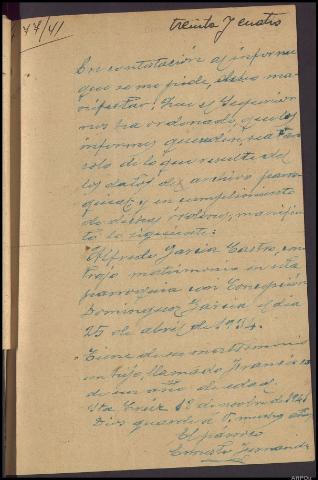 47/41
treinta y cuatro
En contestación al informe
que se me pide, debo ma-
nifestar: Que el Superior
nos ha ordenado, que los
informes que den, sea tan
solo de lo que resulte de
los datos del archivo parro-
quial y en cumplimiento
de dichas ordenes, manifies-
to lo siguiente:
Alfredo García Castro, con-
trajo matrimonio en esta
parroquia con Concepción
Dominguez García el día
25 de abril de 1934.
Tiene de su matrimonio
un hijo, llamado Francisco
de un año de edad.
Sta Cruz 12 de novbre de 1941
Dios guarde á V. muchos años
El párroco
Ernesto Fernandez